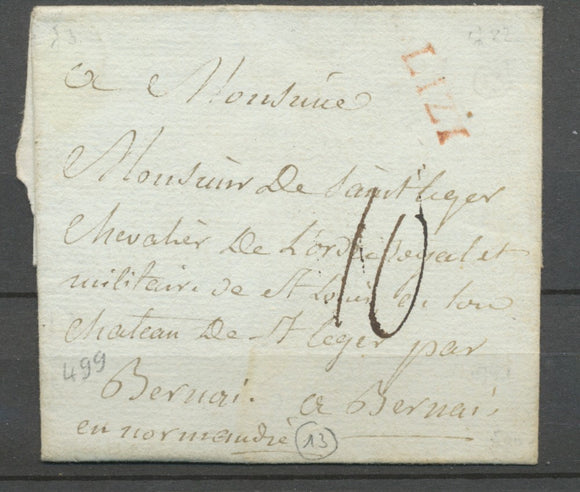 LIZI
a Monsieur
Monsieur De Saint leger
Chevalier De L'ordre Royal et
militaire de St Louis en son
10
chateau De St leger par
499
Bernai. a Bernai.
en normandie 13